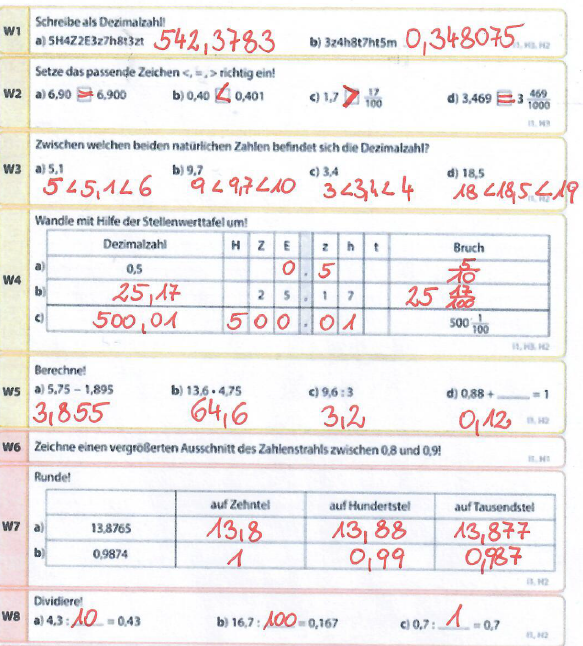 W1 Schreibe als Dezimalzahl!
a) 5H4Z2E3z7h8t3zt 542,3783 b) 3z4h8t7ht5m 0,348075 I1, H3, H2
W2 Setze das passende Zeichen <, =, > richtig ein!
a) 6,90 = 6,900 b) 0,40 < 0,401 c) 1,7 > 17/100 d) 3,469 = 3 469/1000
I1, H3
W3 Zwischen welchen beiden natürlichen Zahlen befindet sich die Dezimalzahl?
a) 5,1 b) 9,7 c) 3,4 d) 18,5
5<5,1<6 9<9,7<10 3<3,4<4 18<18,5<19
I1, H2
W4 Wandle mit Hilfe der Stellenwerttafel um!
Dezimalzahl H Z E . z h t Bruch
a) 0,5 0 . 5 5/10
b) 25,17 2 5 . 1 7 25 17/100
c) 500,01 5 0 0 . 0 1 500 1/100
I1, H3, H2
W5 Berechne!
a) 5,75 – 1,895 b) 13,6 • 4,75 c) 9,6 : 3 d) 0,88 + ____ = 1
3,855 64,6 3,2 0,12 I1, H2
W6 Zeichne einen vergrößerten Ausschnitt des Zahlenstrahls zwischen 0,8 und 0,9!
I1, H1
W7 Runde!
auf Zehntel auf Hundertstel auf Tausendstel
a) 13,8765 13,8 13,88 13,877
b) 0,9874 1 0,99 0,987
I1, H2
W8 Dividiere!
a) 4,3 : 10 = 0,43 b) 16,7 : 100 = 0,167 c) 0,7 : 1 = 0,7
I1, H2